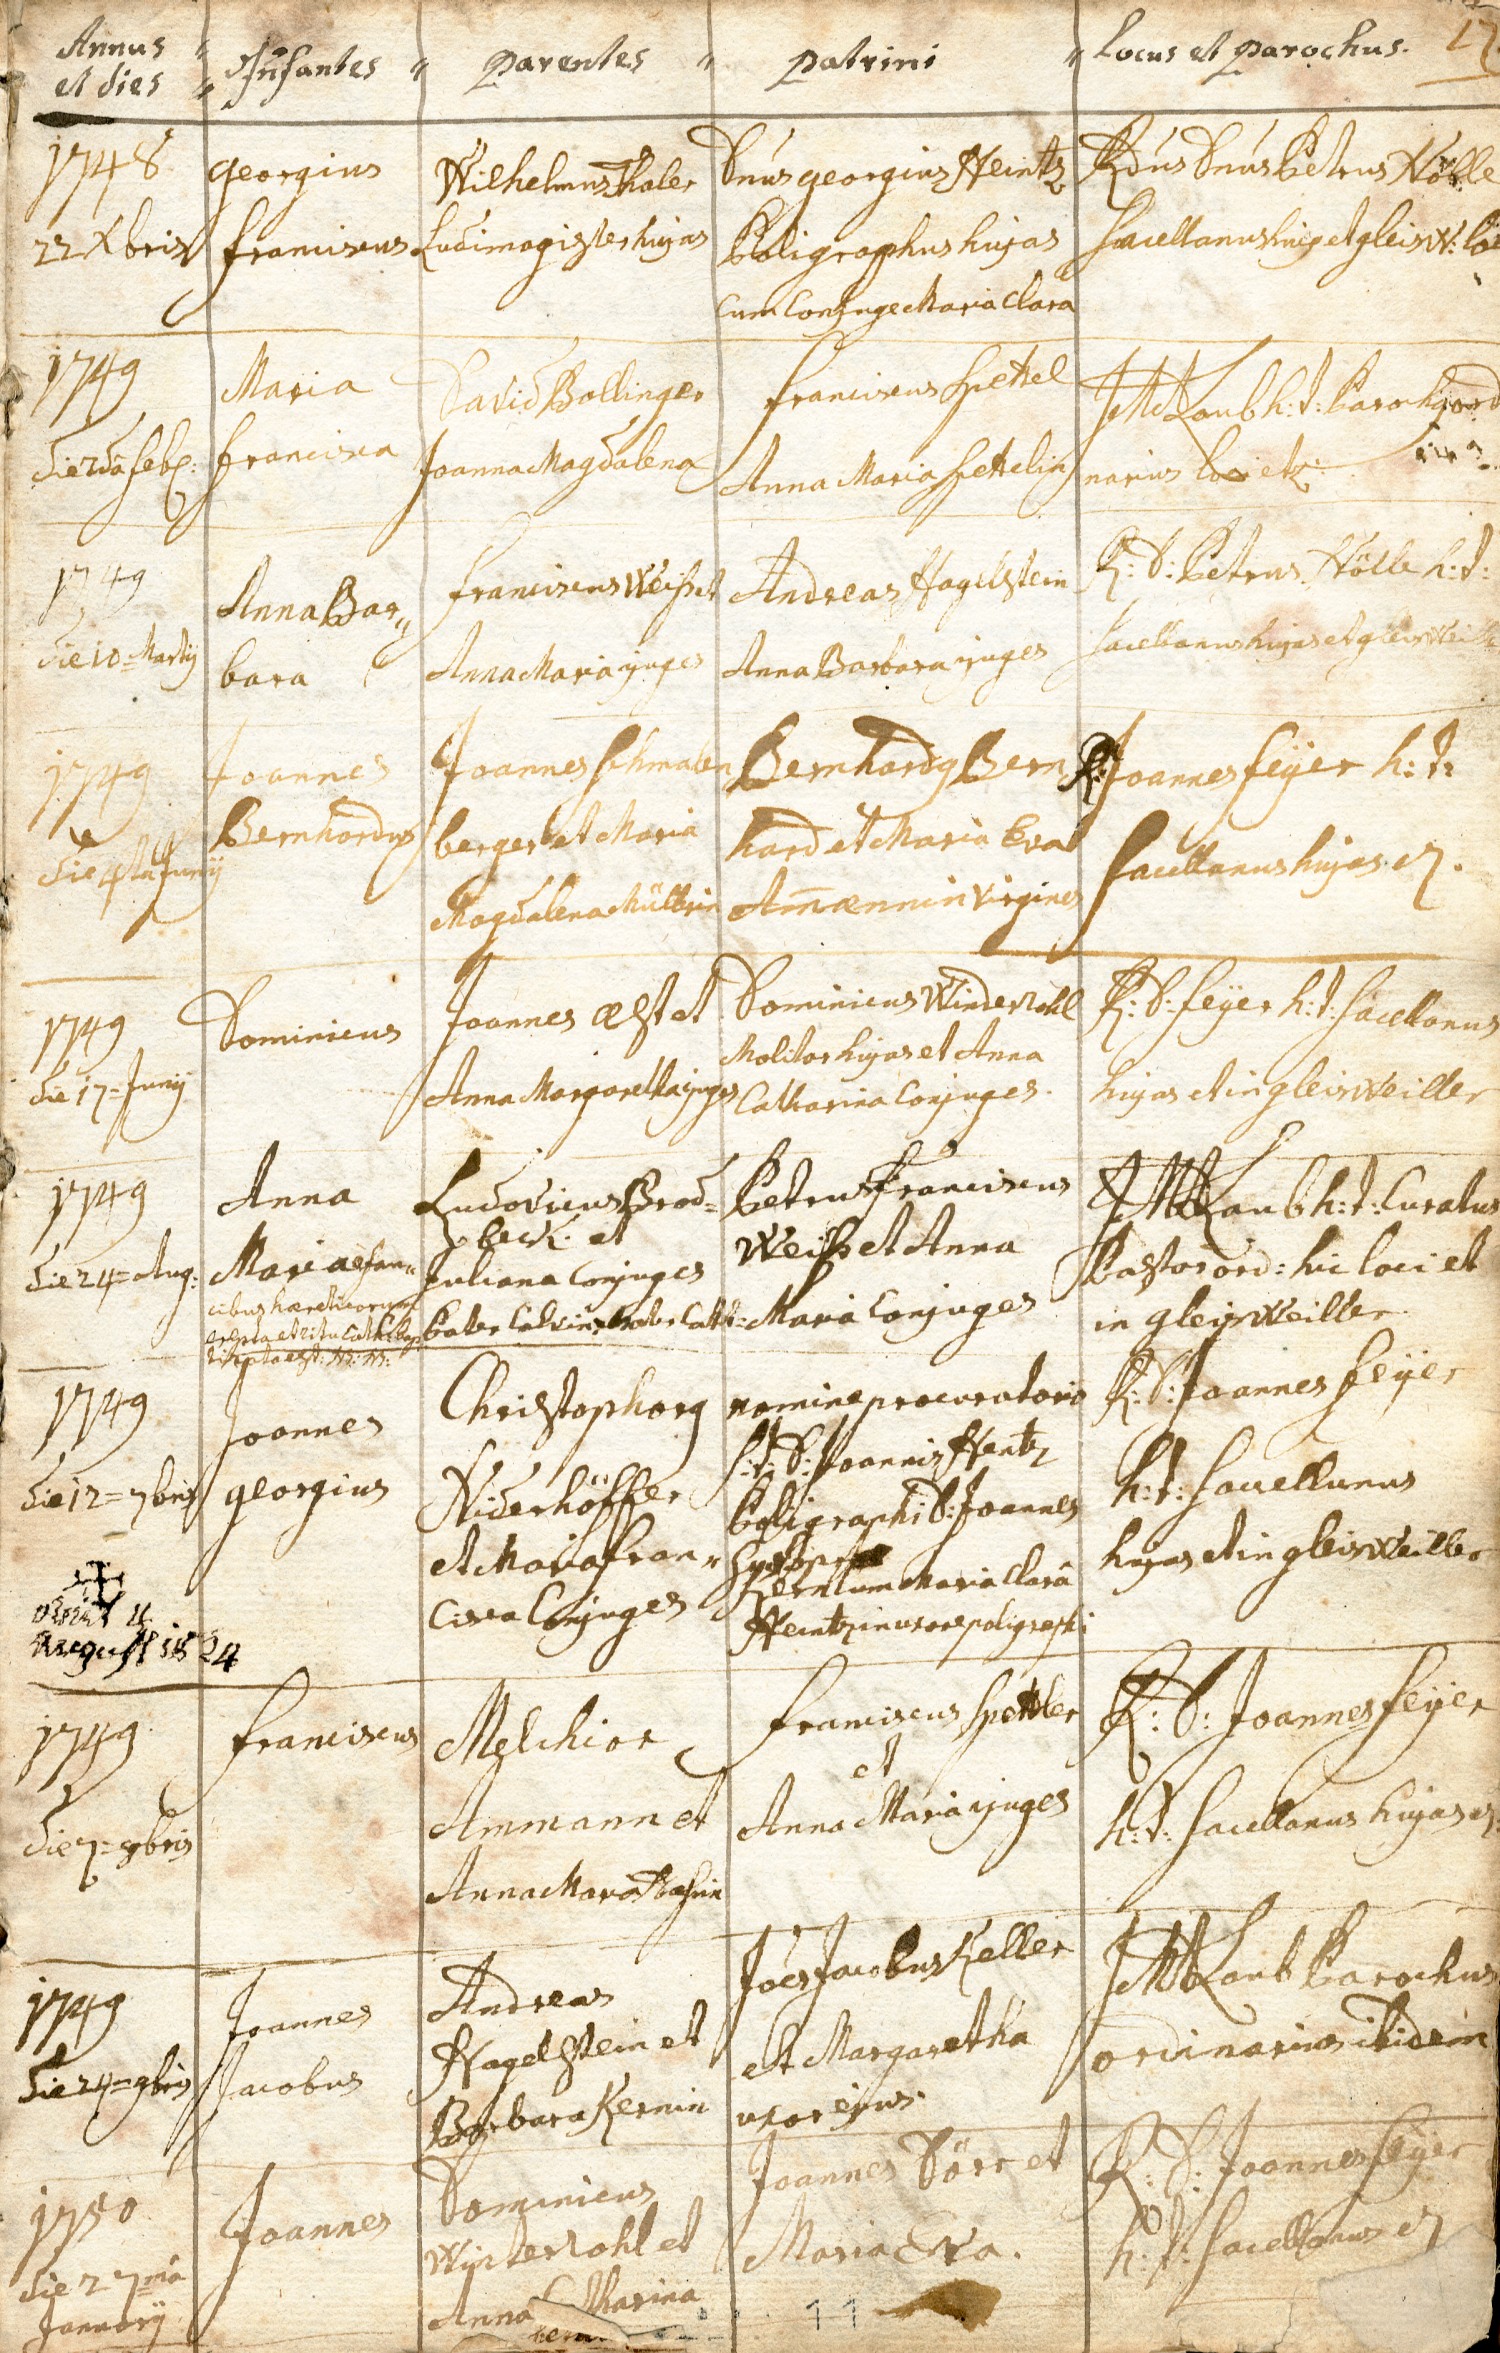 Annus et dies " Infantes " Parentes " Patrini " Locus et Parochus. 17
1748
22 Xbris
Georgius
Franciscus
Wilhelmus Thaler
Ludimagister hujas
Dnus Georgius Heintz
Poligraphus hujas
cum Conjuge Maria Clara
Rdus Dnus Petrus Nölle
Sacellanus huj. et gleisw: loci
1749
die 2da feb:
Maria
Francisca
David Bollinger
Joanna Magdalena
Franciscus Spettel
Anna Maria Spettelin
JM Laub h: t: Paroch. ordi
narius loci etc:
1749
die 10 = Martij
Anna Bar"
bara
Franciscus Weiss et
Anna Maria cjuges
Andreas Hagelstein
Anna Barbara cjuges
R: D: Petrus Nölle h: t:
Sacellanus hujas et gleisweill
1749
die 4ta Junij
Joannes
Bernhardus
Joannes Schmalen
berger et Maria
Magdalena Müllerin
Bernhardg Bern
hard et Maria Eva
Am̄ænnin virgines
R: Joannes Feÿer h: t:
Sacellanus hujas. etc.
1749
die 17 = Junij
Dominicus
Joannes Æst et
Anna Margaretha cjuges
Dominicus Winderzohl
Molitor hujas et Anna
Catharina Conjuges.
R: D: Feÿer h: t: Sacellanus
hujas et in gleisweiller
1749
die 24 = Aug:
Anna
Maria e fau"
cibus hæreticorum
erepta et ritu Cath. bap
tizata est.
Ludovicus Brod=
beck. et
Juliana Conjuges
Pater Calvin. Mater Cath:
Petrus Franciscus
Weiss et Anna
Maria Conjuges
JM Laub h: t: Curatus
Pastor ord: hic loci et
in gleisweiller
1749
die 12 = 7bris
Joannes
Georgius
Christophorg
Niderhöffer
et Maria Fran"
cisca Conjuges
nomine procuratorio
D: Joannis Heintz
Poligraphi D: Joannes
Kern cum Maria Clara
Heintzin uxore poligraphi
R: D: Joannes Feÿer
h: t: Sacellanus
hujas et in gleisweiller
obiit 4
August 1824
1749
die 7 = 8bris
Franciscus
Melchior
Ammann et
Anna Maria
Franciscus Spettler
et
Anna Maria cjuges
R: D: Joannes Feÿer
h: t: Sacellanus hujas etc
1749
die 24 = 9bris
Joannes
Jacobus
Andreas
Hagelstein et
Barbara Kernin
Joes Jacobus Keller
et Margaretha
uxor ejus.
JM Laub Parochus
ordinarius ibidem
1750
die 27ma
Januarij
Joannes
Dominicus
Winterzohl et
Anna Catharina
Joannes Dörr et
Maria Eva.
R: D: Joannes Feÿer
h: t: Sacellanus etc
11